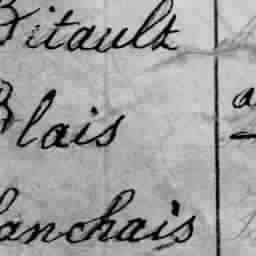 Bitault
Blais
lanchais